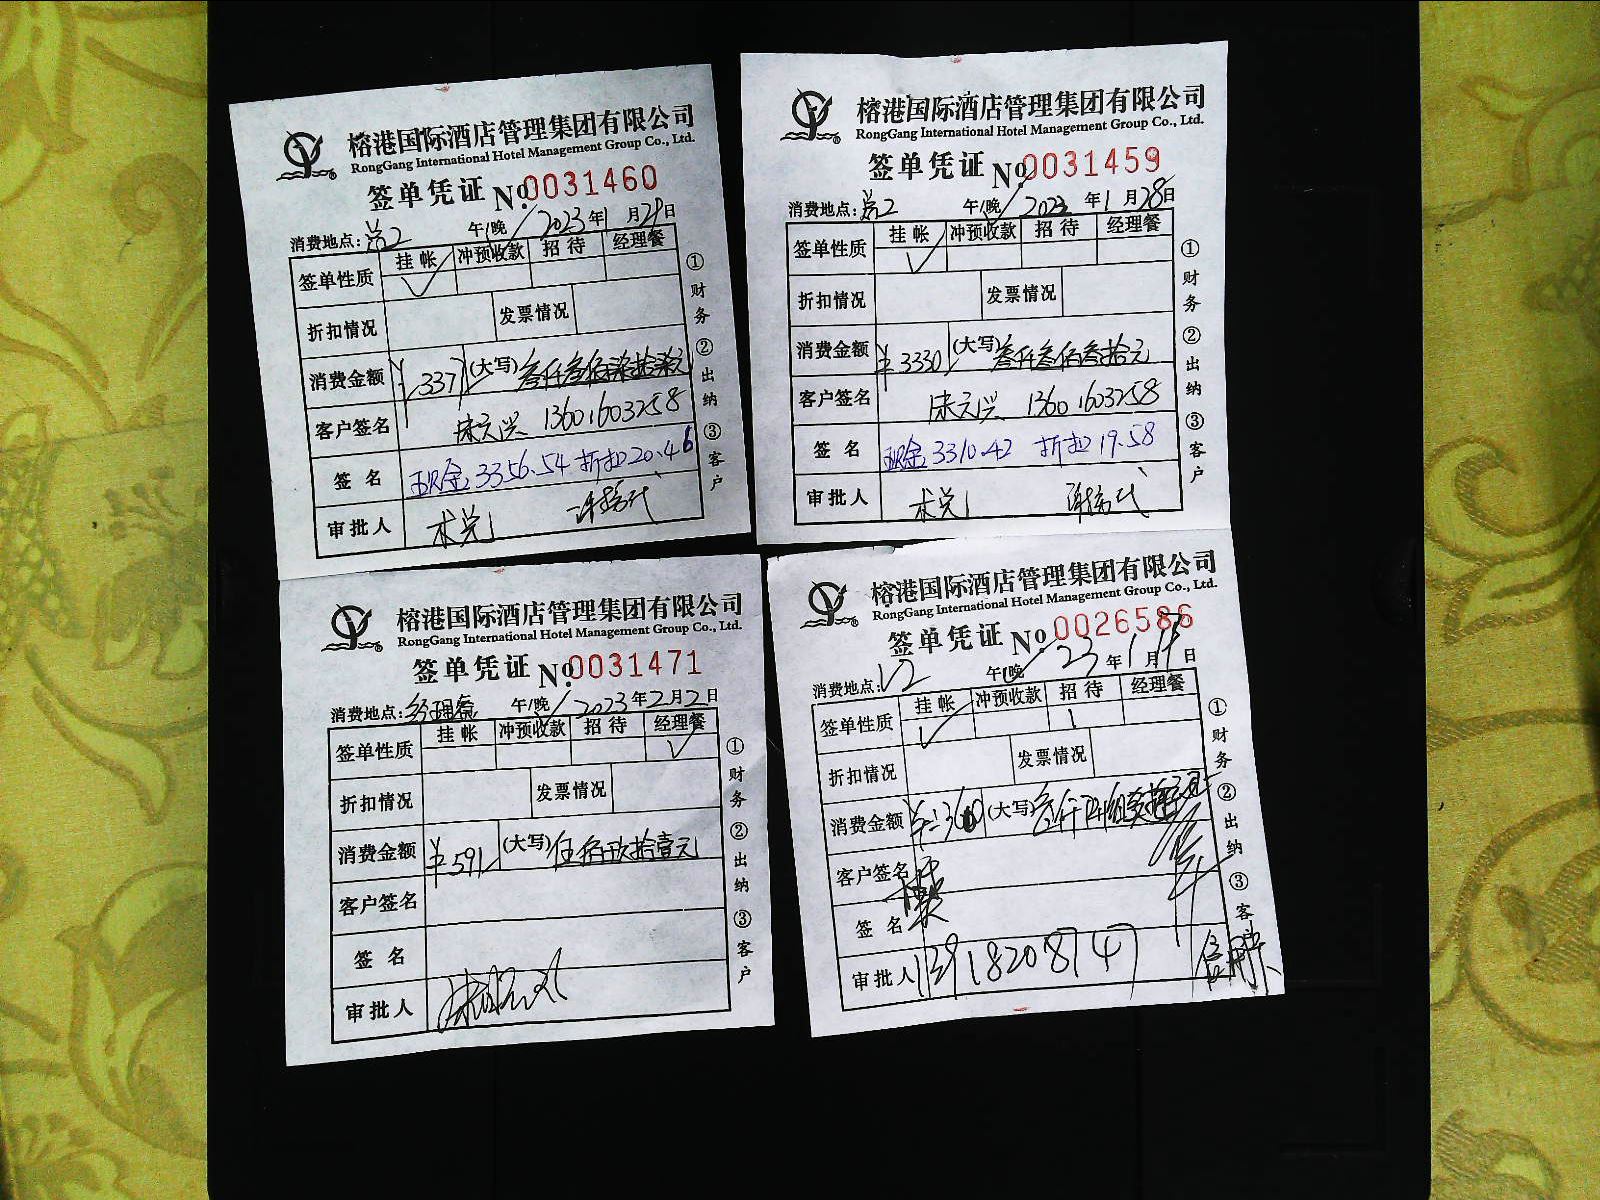 榕港国际酒店管理集团有限公司
RongGang International Hotel Management Group Co., Ltd.
签单凭证 No.0031460
消费地点: 午/晚 2023年1月29日
签单性质 挂帐 冲预收款 招待 经理餐
折扣情况 发票情况
消费金额 ¥337 (大写) 叁仟叁佰柒拾柒元
客户签名 13601603258
签名 现金:3356.54 折扣20.46
审批人
①财务 ②出纳 ③客户
榕港国际酒店管理集团有限公司
RongGang International Hotel Management Group Co., Ltd.
签单凭证 No.0031459
消费地点: 午/晚 2023年1月28日
签单性质 挂帐 冲预收款 招待 经理餐
折扣情况 发票情况
消费金额 ¥3330 (大写) 叁仟叁佰叁拾元
客户签名 13601603258
签名 现金:3310.42 折扣19.58
审批人
①财务 ②出纳 ③客户
榕港国际酒店管理集团有限公司
RongGang International Hotel Management Group Co., Ltd.
签单凭证 No.0031471
消费地点:经理餐 午/晚 2023年2月2日
签单性质 挂帐 冲预收款 招待 经理餐
折扣情况 发票情况
消费金额 ¥591 (大写) 伍佰玖拾壹元
客户签名
签名
审批人
①财务 ②出纳 ③客户
榕港国际酒店管理集团有限公司
RongGang International Hotel Management Group Co., Ltd.
签单凭证 No.0026586
消费地点:V2 午/晚 23年1月 日
签单性质 挂帐 冲预收款 招待 经理餐
折扣情况 发票情况
消费金额 (大写)
客户签名
签名
审批人 13918208747
①财务 ②出纳 ③客户